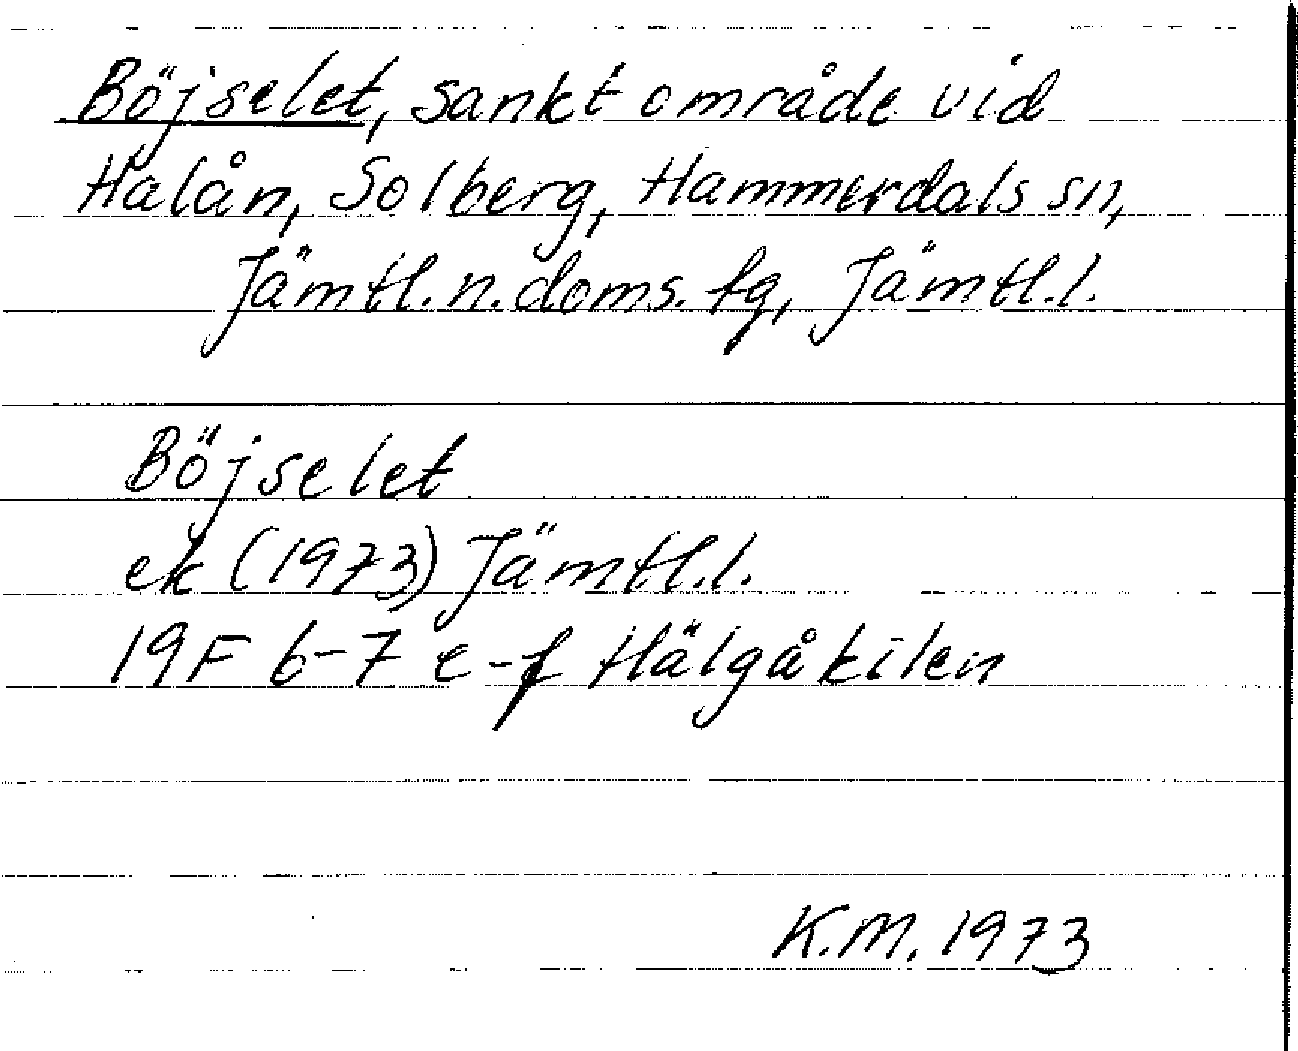 Böjselet, sankt område vid
Halån, Solberg, Hammerdals sn,
Jämtl. n. doms. fg, Jämtl. l.
Böjselet
ek (1973) Jämtl. l.
19F 6-7 e-f Hälgåkilen
K.M. 1973